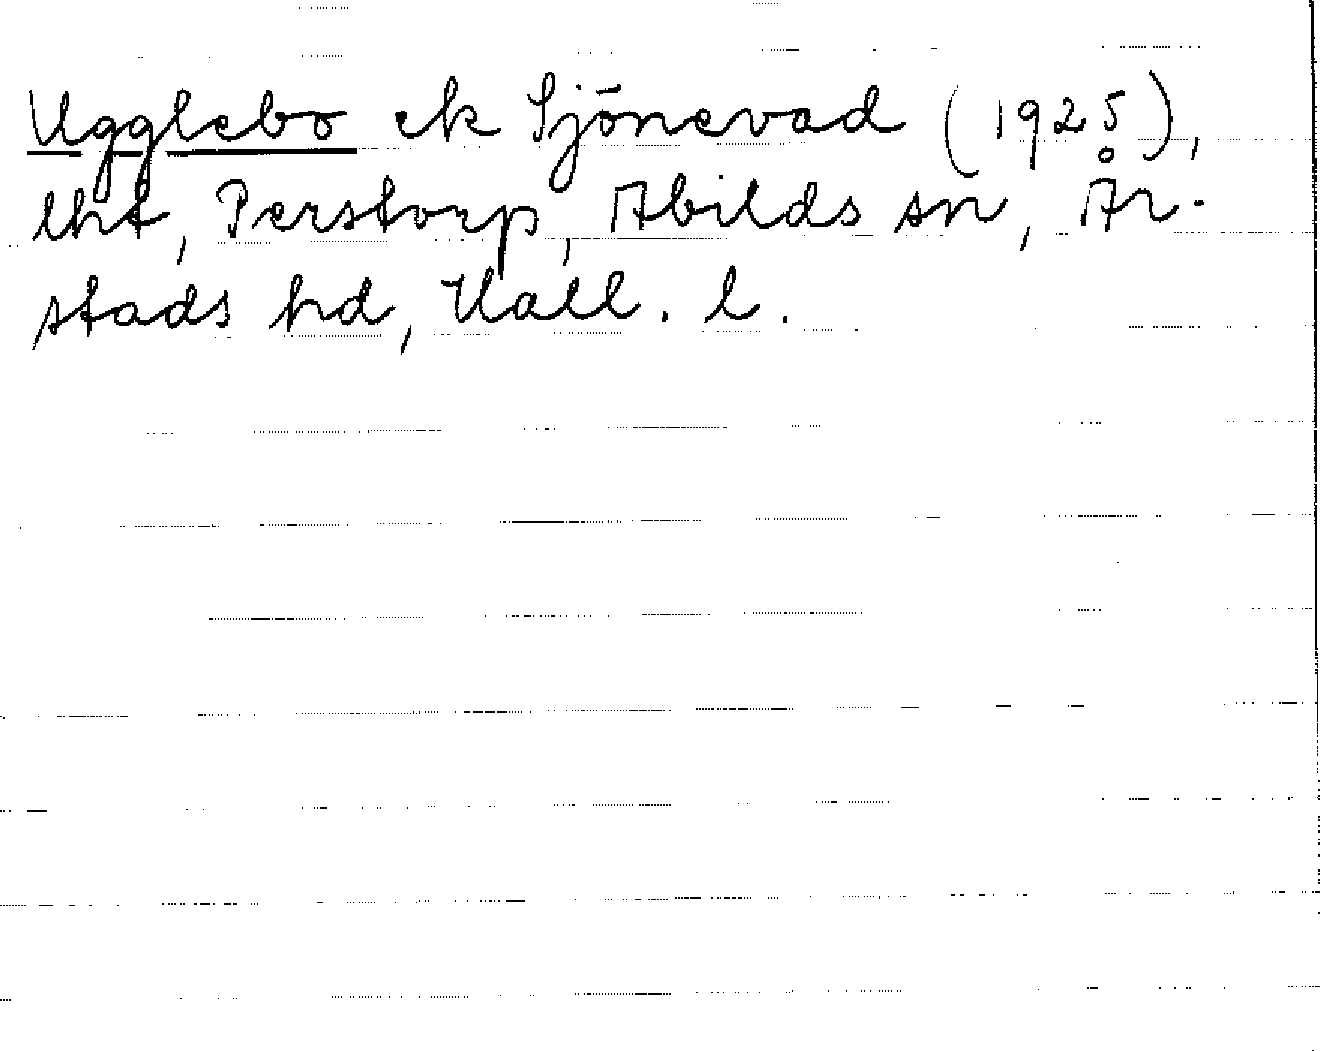 Ugglebo ek Sjönevad (1925),
lht, Perstorp, Abilds sn, År-
stads hd, Hall. l.